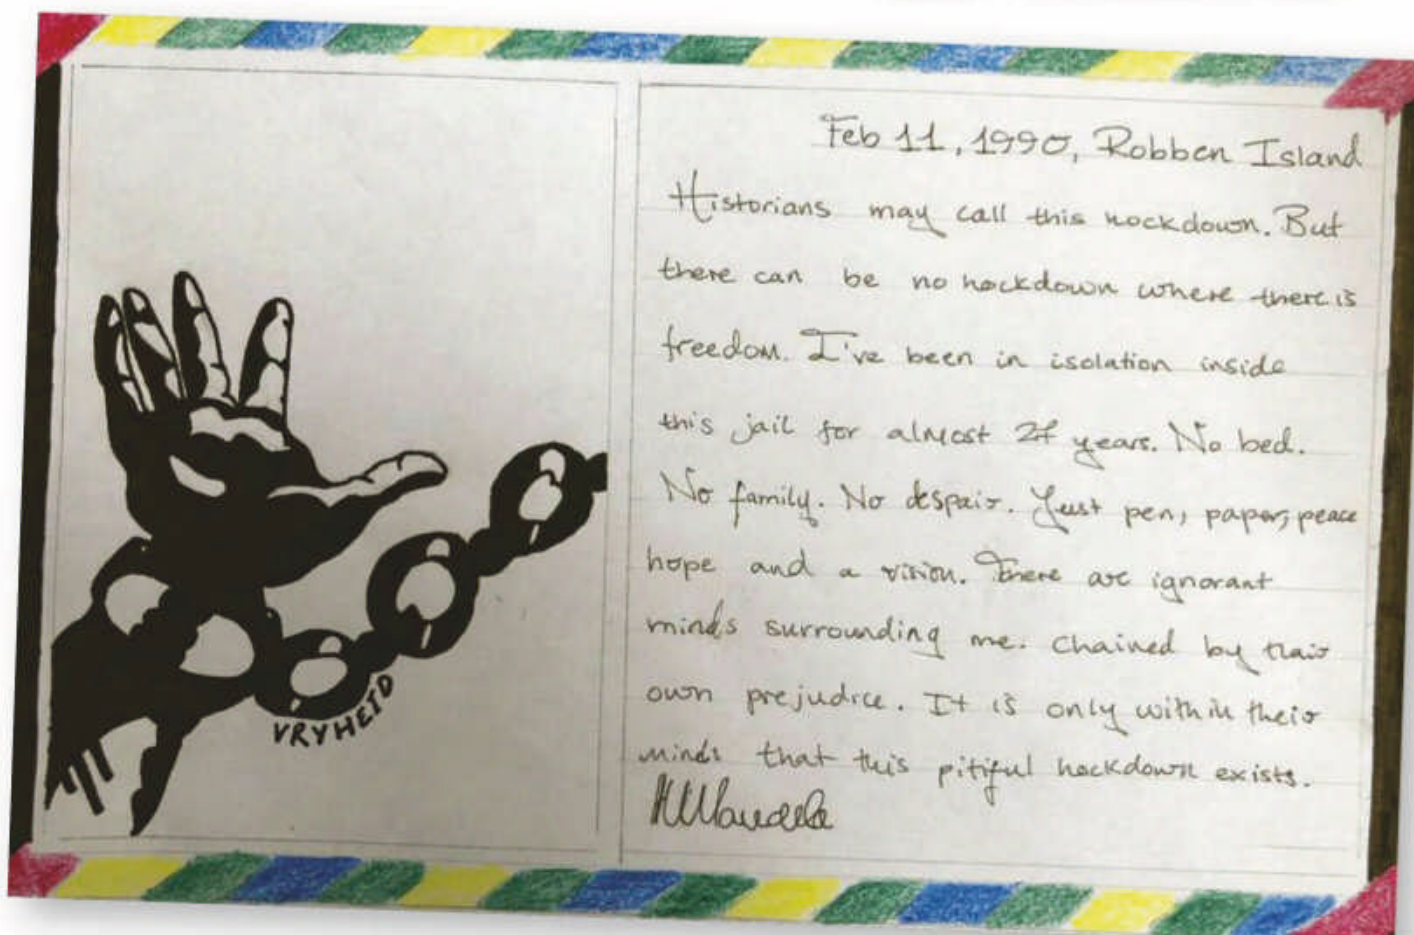 Feb 11, 1990, Robben Island
Historians may call this. But
there can be no where there is
freedom. I've been in isolation inside
this jail for almost 27 years. No bed.
No family. No despair. Just pen, paper, peace
hope and a vision. There are ignorant
minds surrounding me. Chained by their
own prejudice. It is only within their
minds that this pitiful exists.
NMandela
VRYHEID